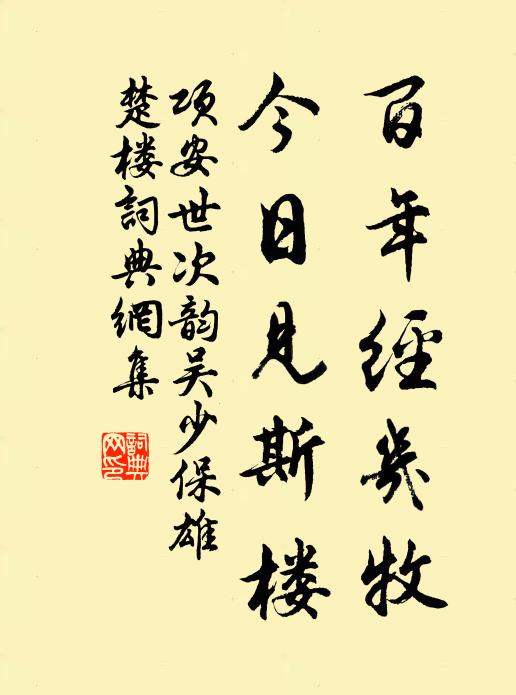 百年經幾牧
今日見斯楼
项安世次韵吴少保雄
楚楼詞典網集
詞典网印